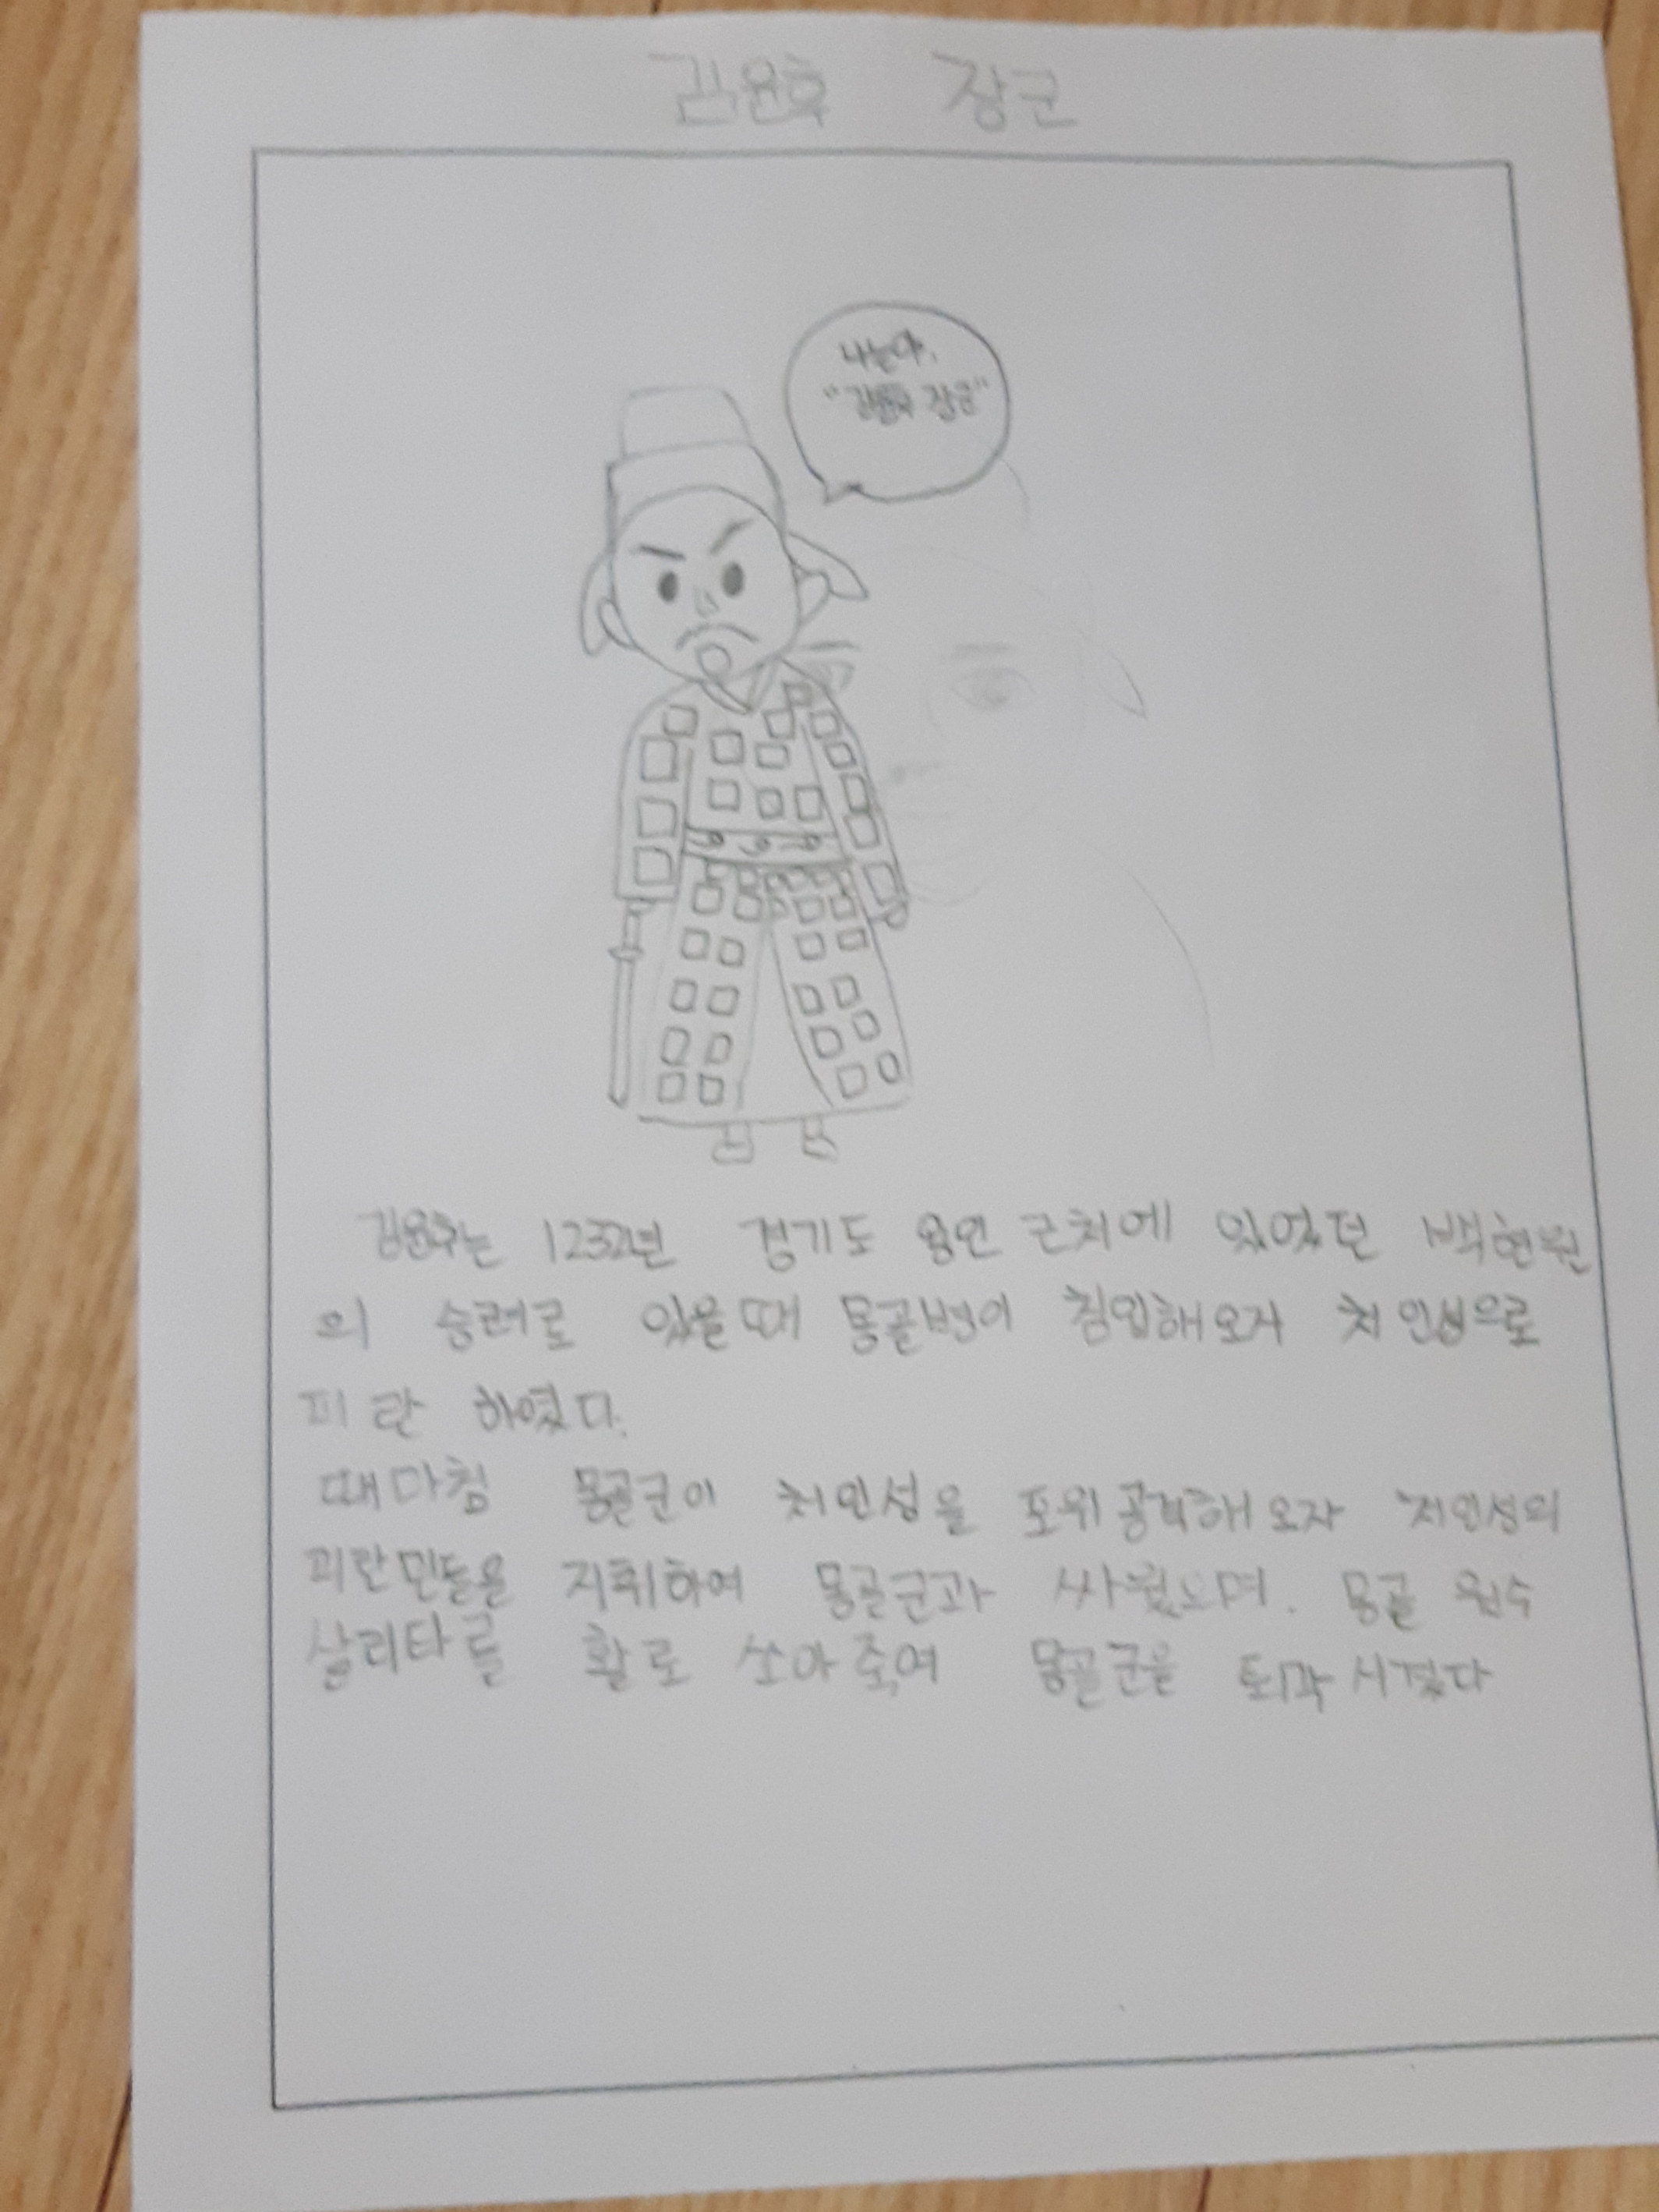 김윤후 장군
나는야,
"김윤후 장군"
김윤후는 1232년 경기도 용인 근처에 있었던 백현원
의 승려로 있을때 몽골병이 침입해오자 처인성으로
피란 하였다.
때마침 몽골군이 처인성을 포위공격해오자 처인성의
피란민들을 지휘하여 몽골군과 싸웠으며. 몽골 원수
살리타를 활로 쏘아죽여 몽골군을 퇴각시켰다